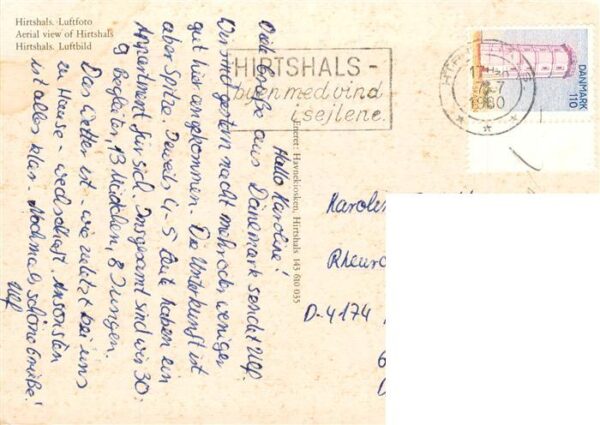 Hirtshals. Luftfoto
Aerial view of Hirtshals
Hirtshals. Luftbild
HIRTSHALS -
byen med vind
i sejlene.
17
-7
1980
DANMARK
110
Eneret: Havnekiosken, Hirtshals 143 610 035
Hallo Karoline!
Viele Grüße aus Dänemark sendet Ulf.
Wir sind gestern nacht mehr oder weniger
gut hier angekommen. Die Unterkunft ist
aber Spitze. Jeweils 4-5 Leute haben ein
Appartment für sich. Insgesamt sind wir 30.
9 Begleiter, 13 Mädchen, 8 Jungen.
Das Wetter ist - wie zuletzt bei uns
zu Hause - wechselhaft. Ansonsten
ist alles klar. Nochmals schöne Grüße!
Ulf
Karolin
Rheur
D-4174
6